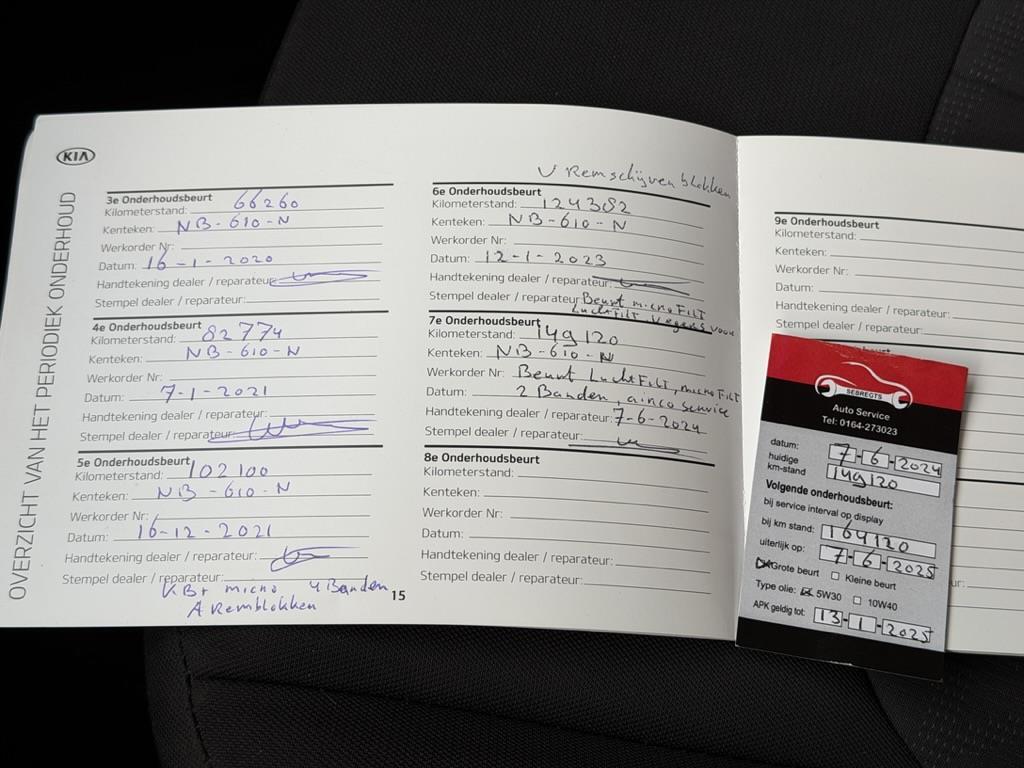 KIA
OVERZICHT VAN HET PERIODIEK ONDERHOUD
3e Onderhoudsbeurt
Kilometerstand: 66260
Kenteken: NB-610-N
Werkorder Nr:
Datum: 16-1-2020
Handtekening dealer / reparateur:
Stempel dealer / reparateur:
4e Onderhoudsbeurt
Kilometerstand: 82774
Kenteken: NB-610-N
Werkorder Nr:
Datum: 7-1-2021
Handtekening dealer / reparateur:
Stempel dealer / reparateur:
5e Onderhoudsbeurt
Kilometerstand: 102100
Kenteken: NB-610-N
Werkorder Nr:
Datum: 16-12-2021
Handtekening dealer / reparateur:
Stempel dealer / reparateur:
KB+ micro 4 Banden
A Remblokken
15
V Remschijven blokken
6e Onderhoudsbeurt
Kilometerstand: 124382
Kenteken: NB-610-N
Werkorder Nr:
Datum: 12-1-2023
Handtekening dealer / reparateur:
Stempel dealer / reparateur: Beurt micro Filt
Lucht Filt voor
7e Onderhoudsbeurt
Kilometerstand: 149120
Kenteken: NB-610-N
Werkorder Nr: Beurt Lucht Filt, micro Filt
Datum: 2 Banden, airco service
Handtekening dealer / reparateur: 7-6-2024
Stempel dealer / reparateur:
8e Onderhoudsbeurt
Kilometerstand:
Kenteken:
Werkorder Nr:
Datum:
Handtekening dealer / reparateur:
Stempel dealer / reparateur:
9e Onderhoudsbeurt
Kilometerstand:
Kenteken:
Werkorder Nr:
Datum:
Handtekening dealer / reparateur:
Stempel dealer / reparateur:
SEBREGTS
Auto Service
Tel: 0164-273023
datum: 7-6-2024
huidige
km-stand 149120
Volgende onderhoudsbeurt:
bij service interval op display
bij km stand: 164120
uiterlijk op: 7-6-2025
Grote beurt Kleine beurt
Type olie: 5W30 10W40
APK geldig tot: 13-1-2025